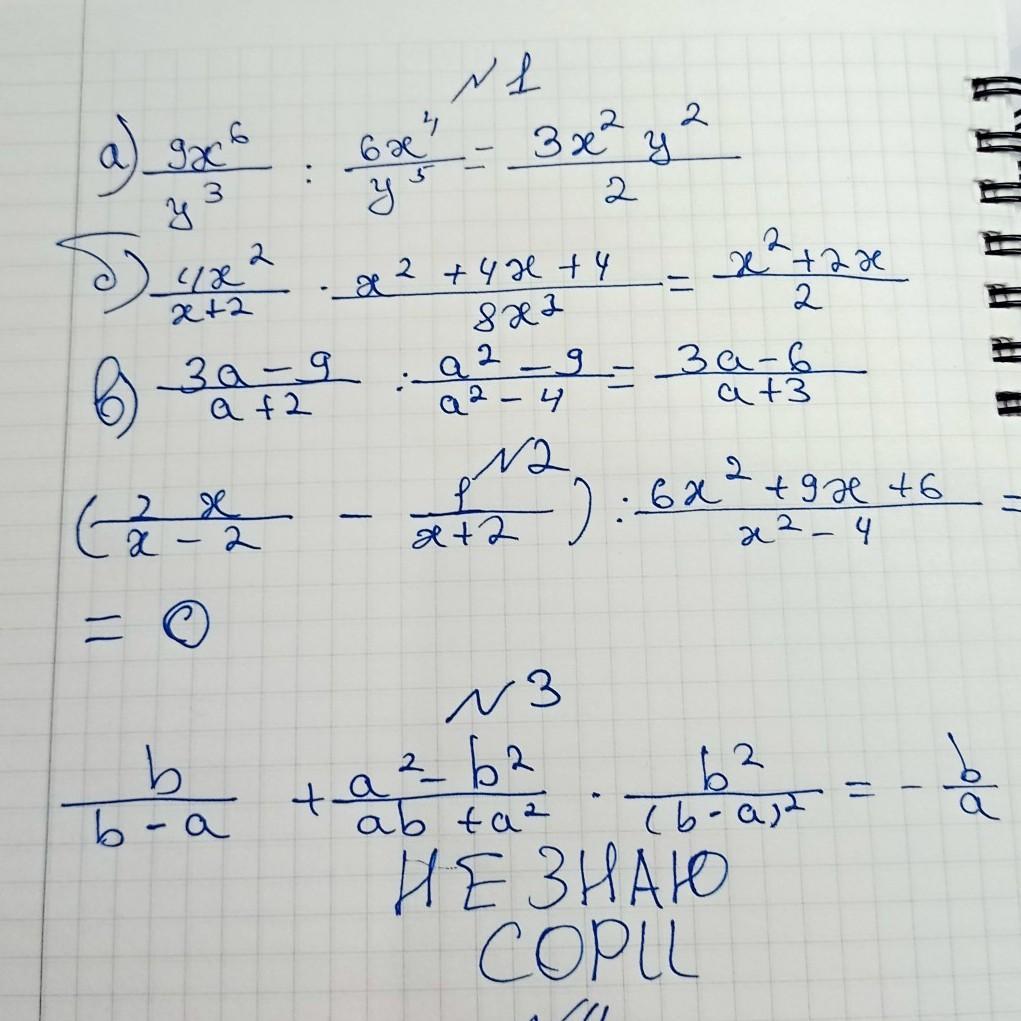 №1
а) 9x⁶/y³ : 6x⁴/y⁵ = 3x² y²/2
б) 4x²/x+2 · x² + 4x + 4/8x³ = x² + 2x/2
в) 3a - 9/a + 2 : a² - 9/a² - 4 = 3a - 6/a + 3
№2
(2x/x - 2 - 1/x + 2) : 6x² + 9x + 6/x² - 4 =
= 0
№3
b/b - a + a² - b²/ab + a² · b²/(b - a)² = - b/a
НЕ ЗНАЮ
СОРЦ